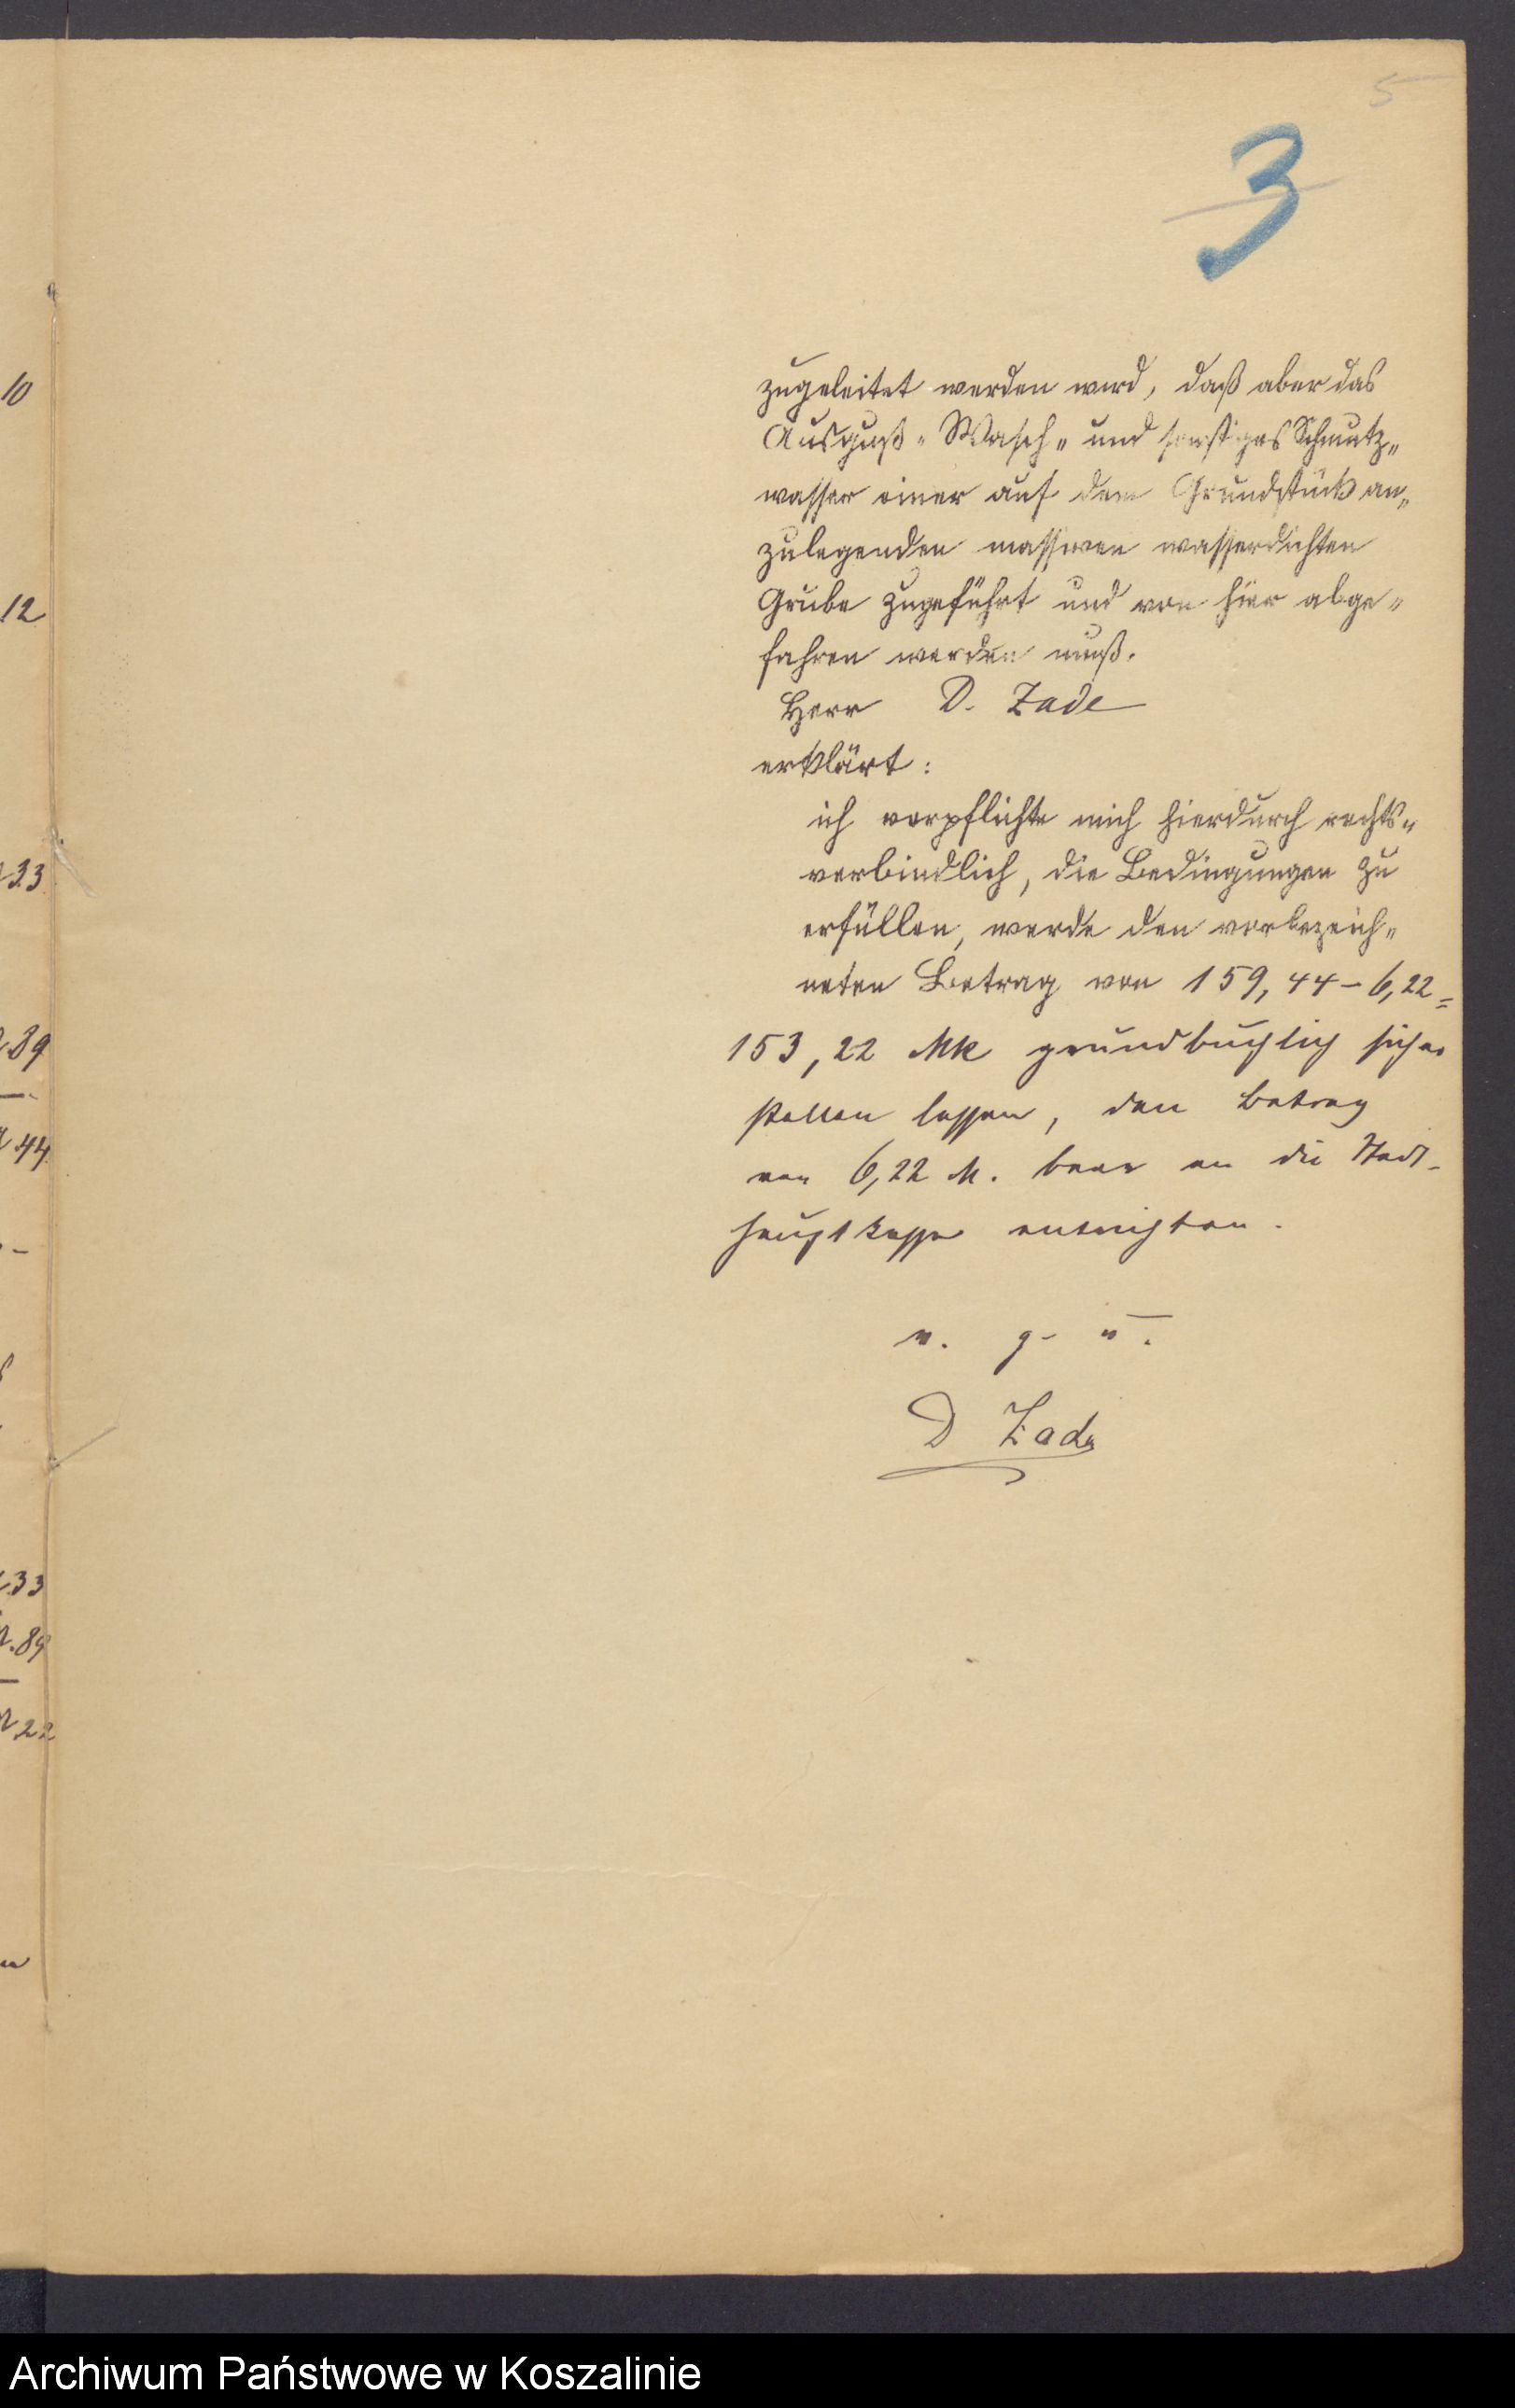 5
3
zugeleitet werden wird, daß aber das
Ausguß- Wasch- und sonstiges Schmutz-
wasser einer auf dem Grundstück an-
zulegenden massiven wasserdichten
Grube zugeführt und von hier abge-
fahren werden muß.
Herr D. Zade
erklärt:
ich verpflichte mich hierdurch rechts-
verbindlich, die Bedingungen zu
erfüllen, werde den vorbezeich-
neten Betrag von 159,44 – 6,22 =
153,22 Mk grundbuchlich sicher
stellen lassen, den Betrag
von 6,22 M. baar an die Stadt-
hauptkasse entrichten.
v. g. u.
D Zade
10
12
33
89
44
33
89
22
Archiwum Państwowe w Koszalinie